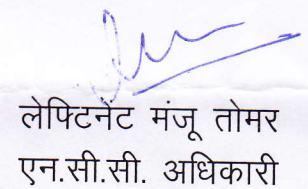 लेफ्टिनेंट मंजू तोमर
एन.सी.सी. अधिकारी